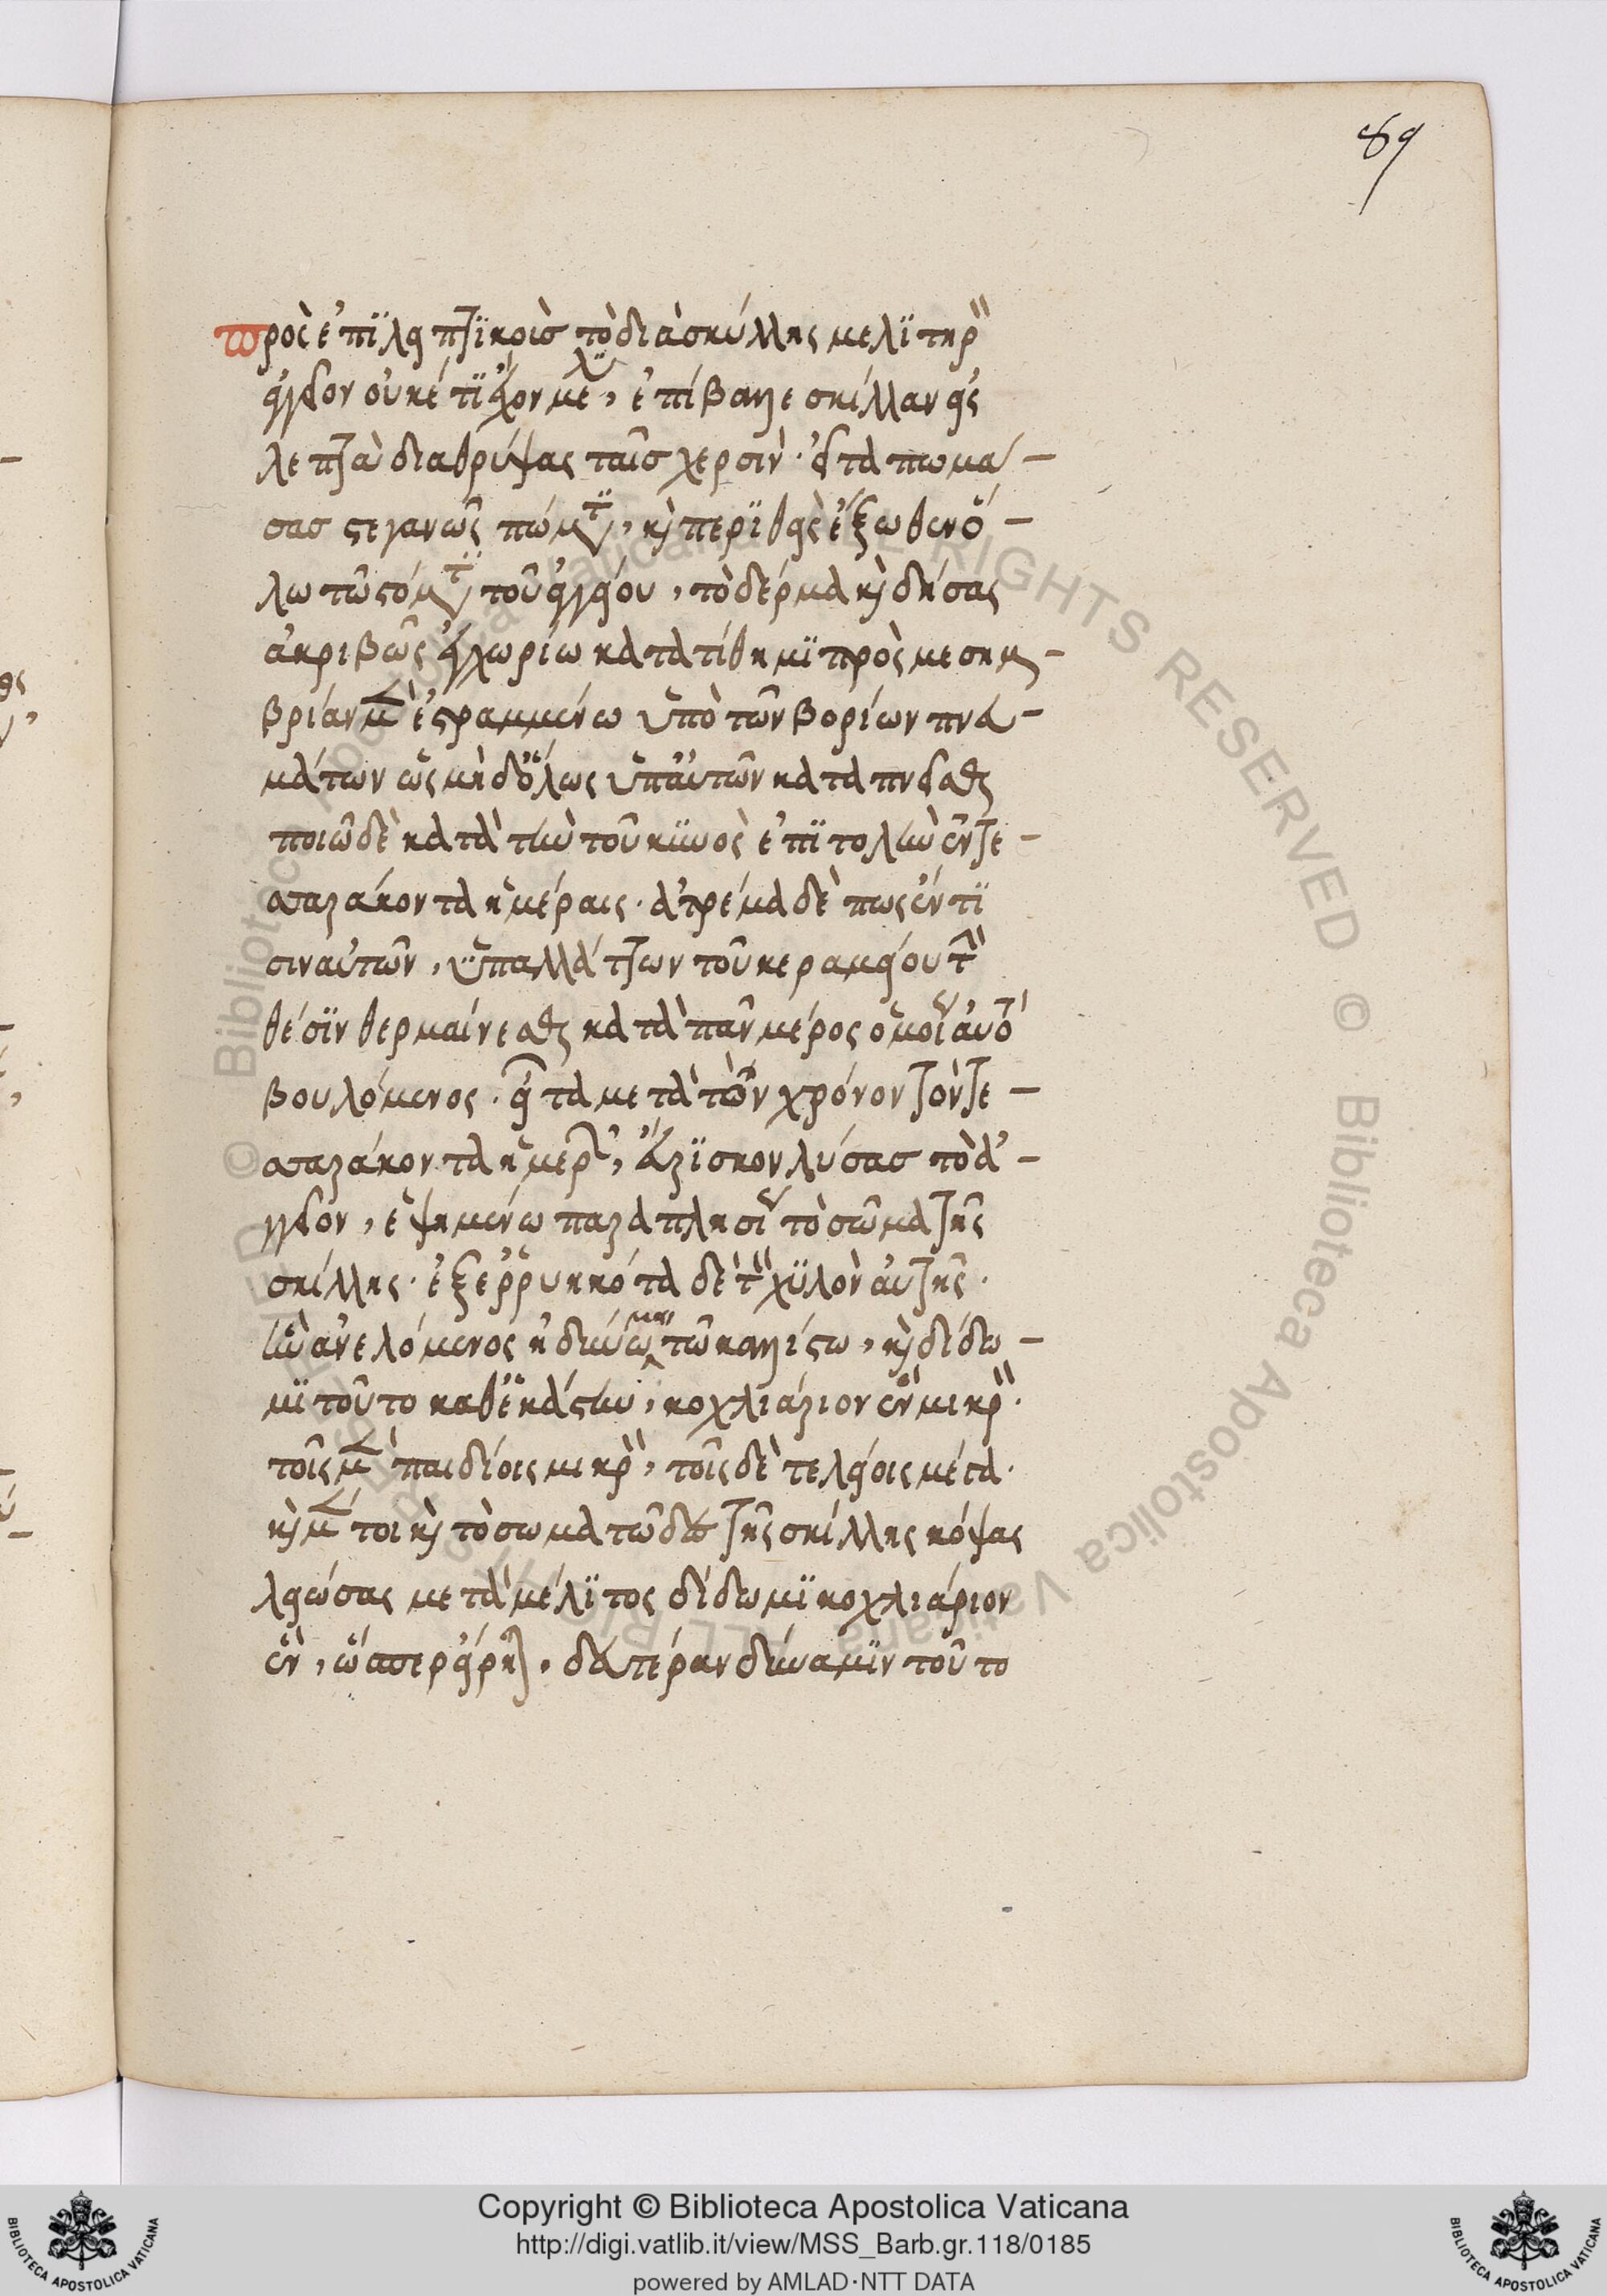 89
πρὸς ἐπϊληπτϊκοὺσ τὸ διὰ σκύλλης μελϊτηρὸν
ἀγγεῖον οὐκέτϊ ἔχον μέλϊ, ἐπίβαλλε σκίλλαν εἰς
λεπτὰ διαθρύψας ταῖσ χερσὶν· εἶτα πωμα –
σασ στεγανῶς πώματϊ, κὶ περϊθεὶς ἔξωθεν ὅ –
λω τῶ στόματϊ τοῦ ἀγγείου, τὸ δέρμα κὶ δήσας
ἀκριβῶς ἐν χωρίω κατατίθημϊ πρὸς μεσημ –
βρίαν μὲν ἐστραμμένω ὑπὸ τῶν βορίων πνευ –
μάτων ὡς μὴ δόλως ὑπ' αὐτῶν καταπνεῖσθαι
ποιῶ δὲ κατὰ τὴν τοῦ κϋνὸς ἐπϊτολὴν ἐν τε –
σσαράκοντα ἡμέραις· ἀτρέμα δέ πως ἔν τϊ
σιν αὐτῶν, ὑπαλλάττων τοῦ κεραμείου τὴν
θέσϊν θερμαίνεσθαι κατὰ πᾶν μέρος ὁμοίως αὐτὸ
βουλόμενος· εἶτα μετὰ τὸν χρόνον τὸν τε –
σσαράκοντα ἡμερῶν, εὕρϊσκον λύσασ τὸ ἀ –
γγεῖον, ἑψημένω παραπλησίως τὸ σῶμα τῆς
σκίλλης· ἐξερρυηκότα δὲ τὸν χϋλὸν αὐτῆς·
ὃν ἀνελόμενος ἡδυνῶ μέλιτϊ τῶ καλλίστω, κὶ δίδω –
μϊ τοῦτο καθ' ἑκάστην, κοχλιάριον ἓν μικρὸν·
τοῖς μὲν παιδίοις μικρὸν, τοῖς δὲ τελείοις μέγα·
κὶ μέν τοι κὶ τὸ σωμα τῶδε τῆς σκίλλης κόψας
λειώσας μετὰ μέλϊτος δίδωμϊ κοχλιάριον
ἓν, ὥσπερ εἴρηται, δευτέραν δύναμϊν τοῦτο
Copyright © Biblioteca Apostolica Vaticana
http://digi.vatlib.it/view/MSS_Barb.gr.118/0185
powered by AMLAD·NTT DATA